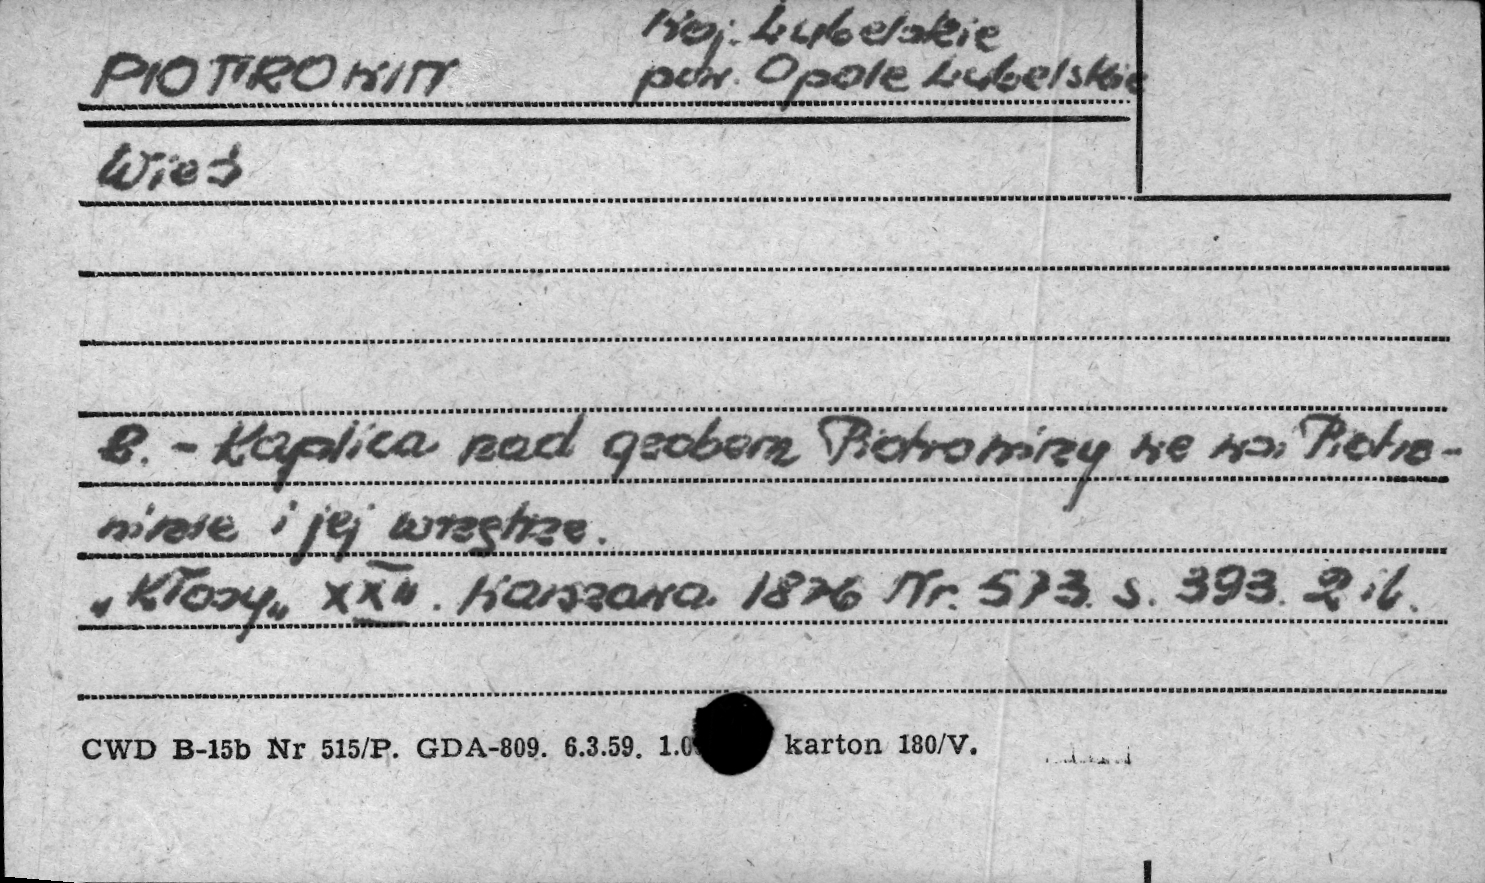 PIOTROWIN Woj. Lubelskie
pow. Opole Lubelskie
Wieś
B. - Kaplica nad grobem Piotrowiny we wsi Piotro-
winie i jej wnętrze.
"Kłosy" XXII. Warszawa 1876 Nr. 573. s. 393. 2 il.
CWD B-15b Nr 515/P. GDA-809. 6.3.59. 1.0 karton 180/V.